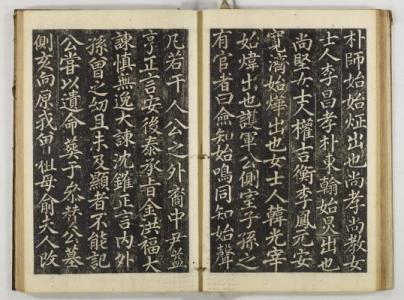 朴師始始炡出也尚孝尚敎女
士人李昌孝朴東翰始炅出也
尚堅女士人權吉衡李鳳元安
寬濟始燁出也女士人韓光宰
始煒出也護軍公側室子孫之
有官者曰僉知始鳴同知始聲
凡若干人公之外裔中尹益
亨正言安後泰承旨金洪福大
諫愼無逸大諫沈錐正言內外
孫曾之幼且未及顯者不能記
公嘗以遺命葬于參判公墓
側亥向原我
祖母兪夫人改